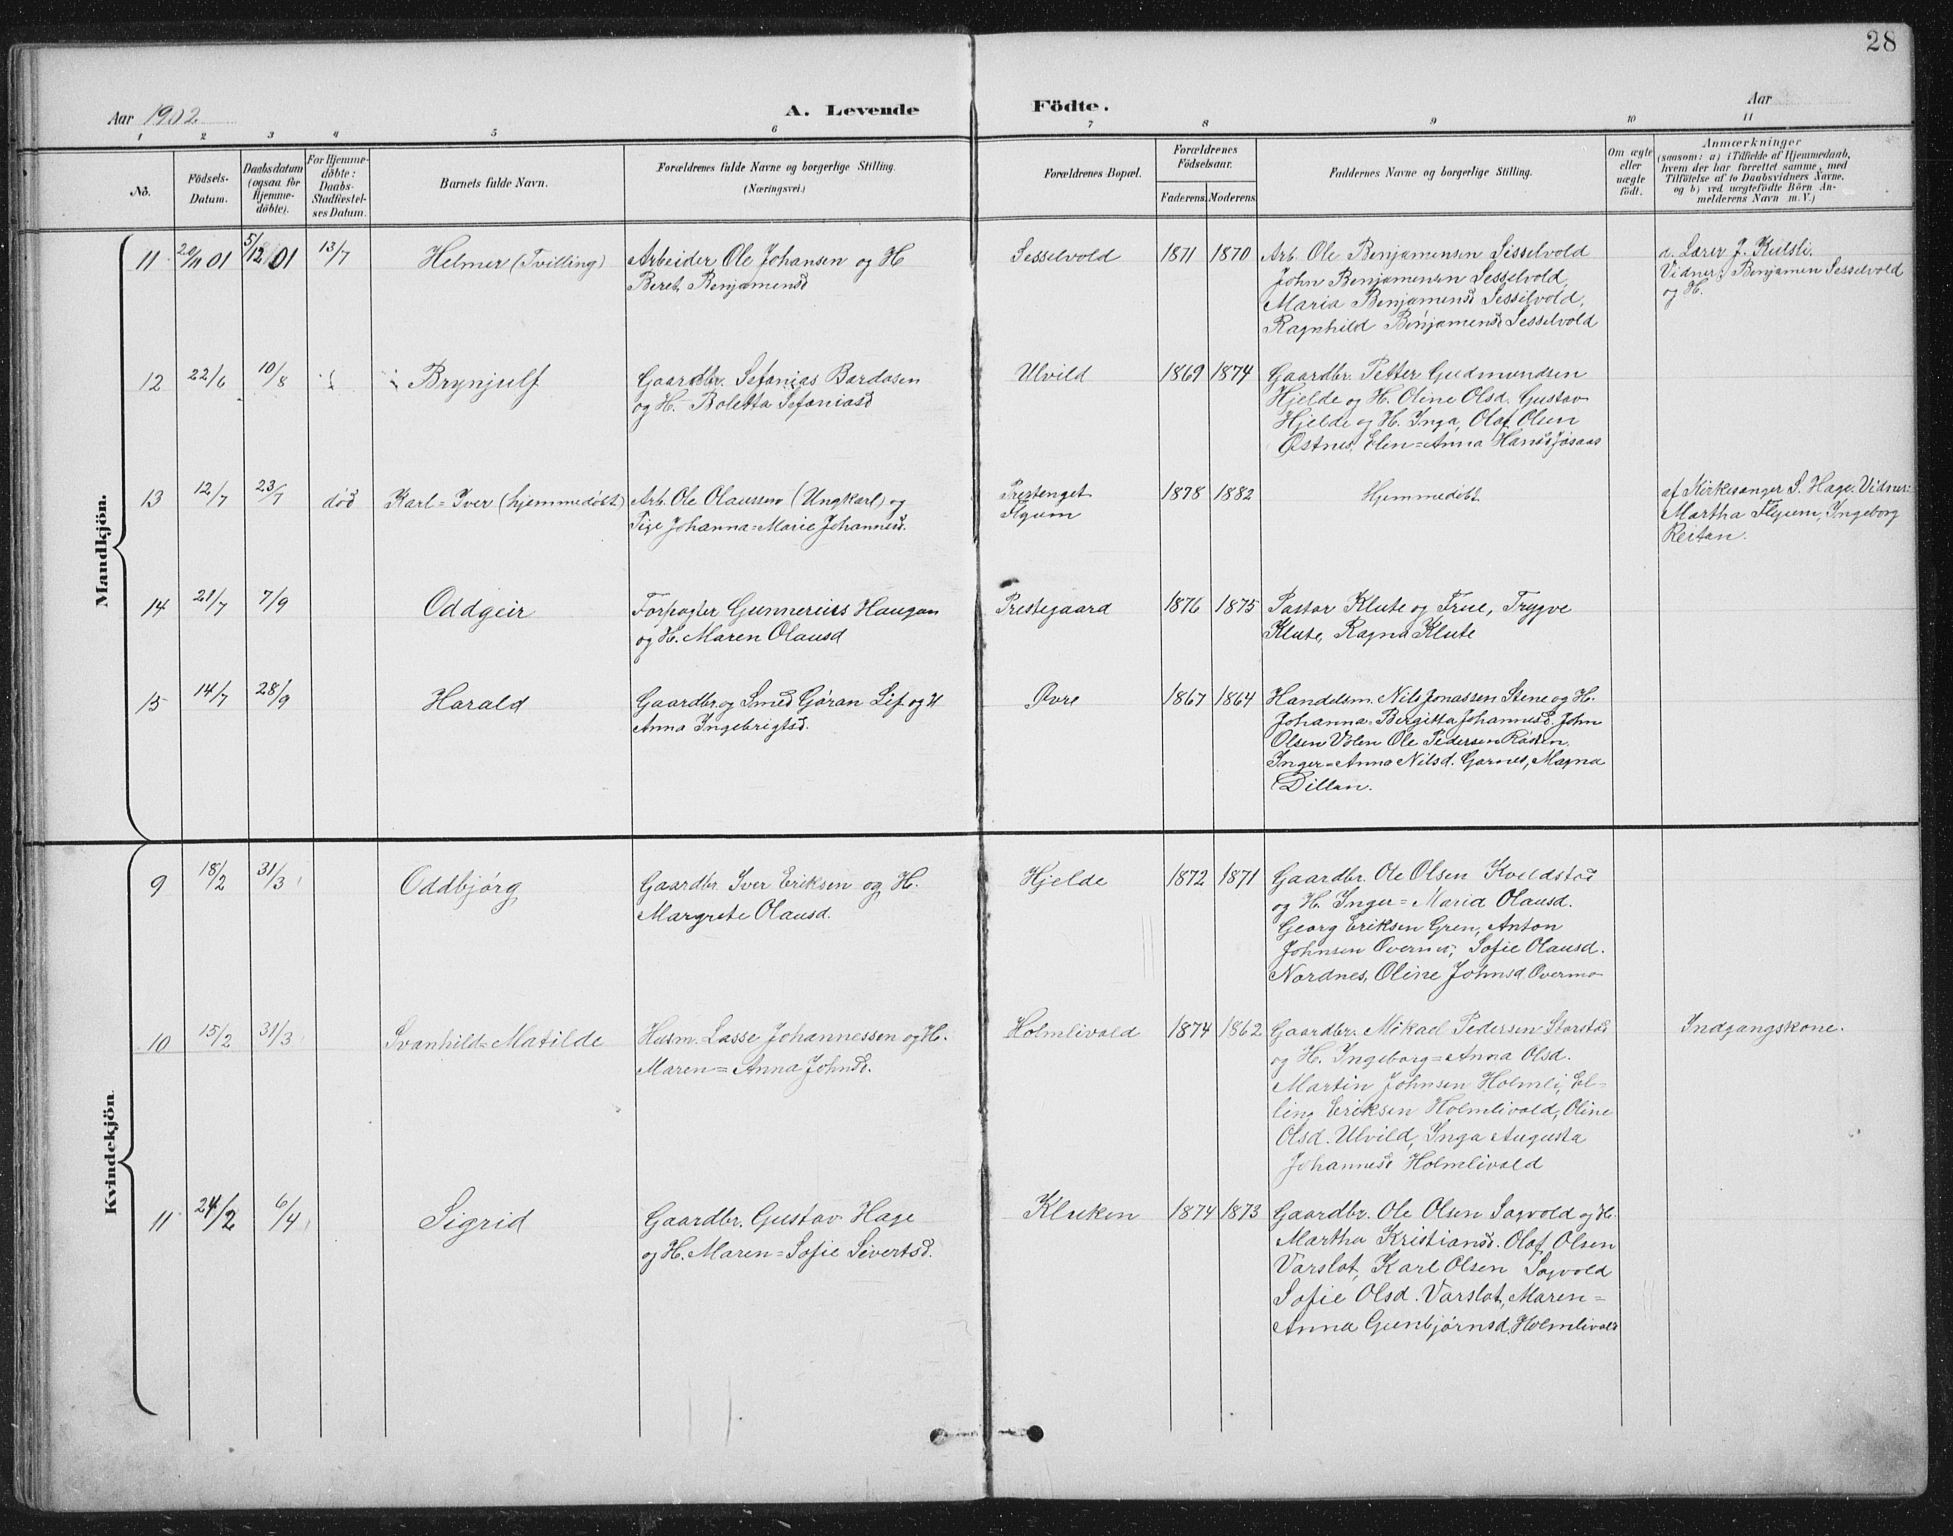 28
Aar 1902
A. Levende
Födte.
Aar
1 2 3 4 5 6 7 8 9 10 11
No.
Födsels-
Datum.
Daabsdatum
(ogsaa for
Hjemme-
døbte).
For Hjemme-
døbte:
Daabs-
Stadfæstel-
ses Datum.
Barnets fulde Navn.
Forældrenes fulde Navne og borgerlige Stilling.
(Næringsvei.)
Forældrenes Bopæl.
Forældrenes
Födselsaar.
Faderens. Moderens.
Faddernes Navne og borgerlige Stilling.
Om ægte
eller
uægte
født.
Anmærkninger
(saasom: a) i Tilfælde af Hjemmedaab,
hvem der har forrettet samme, med
Tilföielse af to Daabsvidners Navne,
og b) ved uægtefødte Börn An-
melderens Navn m. V.)
Mandkjön.
11 20/11 01 5/12 01 13/7
Helmer (Tvilling)
Arbeider Ole Johansen og H
Beret Benjamensd
Sesselvold
1871 1870
Arb. Ole Benjamensen Sesselvold
John Benjamensen Sesselvold,
Maria Benjamensd Sesselvold,
Ragnhild Benjamensd Sesselvold
a. Lærer J. Kulsli.
Vidner: Benjamen Sesselvold
og H.
12 22/6 10/8
Brynjulf
Gaardbr. Sefanias Bardosen
og H. Boletta Sefaniasd
Ulvild
1869 1874
Gaardbr. Petter Gudmundsen
Hjelde og H. Oline Olsd. Gustav
Hjelde og H. Inga, Olaf Olsen
Østnes, Elen=Anna
13 12/7 23/7 død
Karl=Iver (hjemmedøbt)
Arb. Ole Olaussen (Ungkarl) og
Pige Johanna=Marie Johannesd.
Prestenget
Flyum
1878 1882
Hjemmedøbt
af Kirkesanger S. Hage. Vidner:
Martha Flyum, Ingeborg
Reitan.
14 21/7 7/9
Oddgeir
Forpagter Gunnerius Haugan
og H. Maren Olausd
Prestegaard
1876 1875
Pastor Klute og Frue, Trygve
Klute, Ragna Klute
15 14/7 28/9
Harald
Gaardbr. og Smed Gøran Lif og H
Anna Ingebrigtsd.
Øvre
1867 1864
Handelsm. Nils Jonassen Stene og H.
Johanna=Bergitta Johannesd. John
Olsen Volen Ole Pedersen
Inger=Anna Nilsd. Garnes, Magna
Dillan.
Kvindekjön.
9 18/2 31/3
Oddbjørg
Gaardbr. Iver Eriksen og H.
Margrete Olausd.
Hjelde
1872 1871
Gaardbr. Ole Olsen Kveldstad
og H. Inger=Maria Olausd.
Georg Eriksen Gren, Anton
Johnsen Overmo, Sofie Olausd.
Nordnes, Oline Johnsd Overmo
10 15/2 31/3
Svanhild=Matilde
Husm. Lasse Johannessen og H.
Maren=Anna Johnsd.
Holmlivald
1874 1862
Gaardbr. Mikael Pedersen Storstad
og H. Ingeborg=Anna Olsd.
Martin Johnsen Holmli, El-
ling Eriksen Holmlivald, Oline
Olsd. Ulvild, Inga Augusta
Johannesd Holmlivald
Indgangskone.
11 24/2 6/4
Sigrid
Gaardbr. Gustav Hage
og H. Maren=Sofie Sivertsd.
Kluken
1874 1873
Gaardbr. Ole Olsen Sagvold og H.
Martha Kristiansd. Olaf Olsen
Varslot, Karl Olsen Sagvold
Sofie Olsd. Varslot, Maren=
Anna Gunbjørnsd, Holmlivald